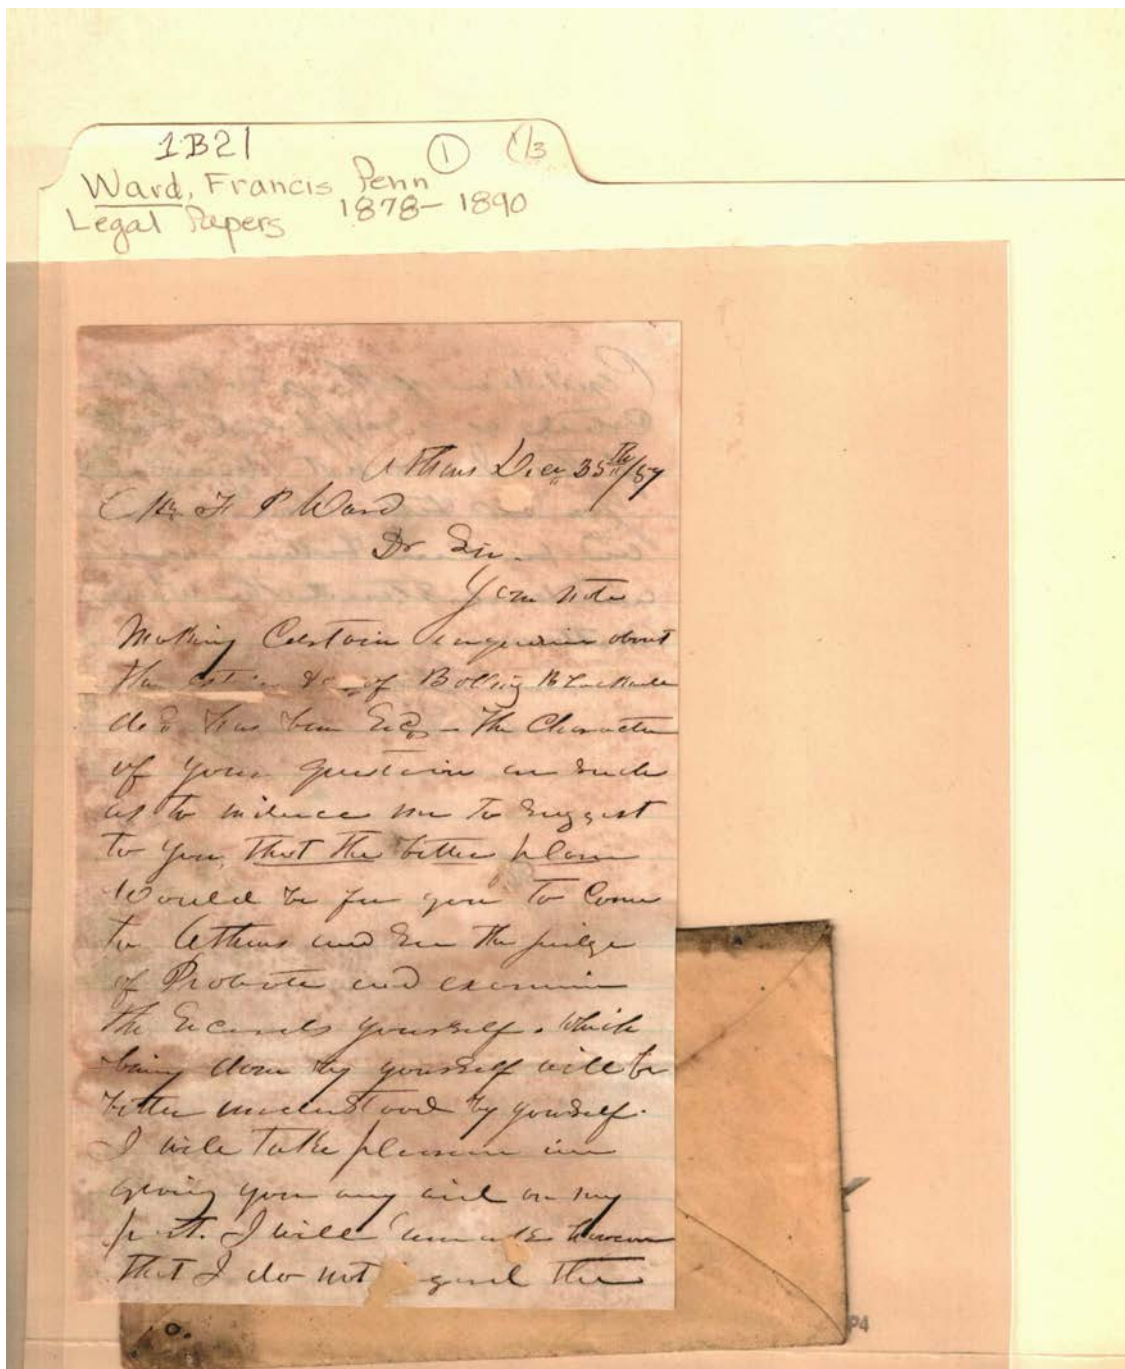 1B21
① 1/3
Ward, Francis Penn
Legal Papers 1878-1890
Athens Dec 35th/87
Mr. F P Ward
Dr Sir.
Your note
Making Certain enquiries about
the of Bolling
decd has been Recd - The Character
of your question are such
as to induce me to Suggest
to you, that the better plan
Would be for you to Come
to Athens and See the judge
of Probate and examine
the Records yourself. Which
being done by yourself will be
better understood by yourself.
I will take pleasure in
giving you any aid on my
part. I will however
that I do not the
P4